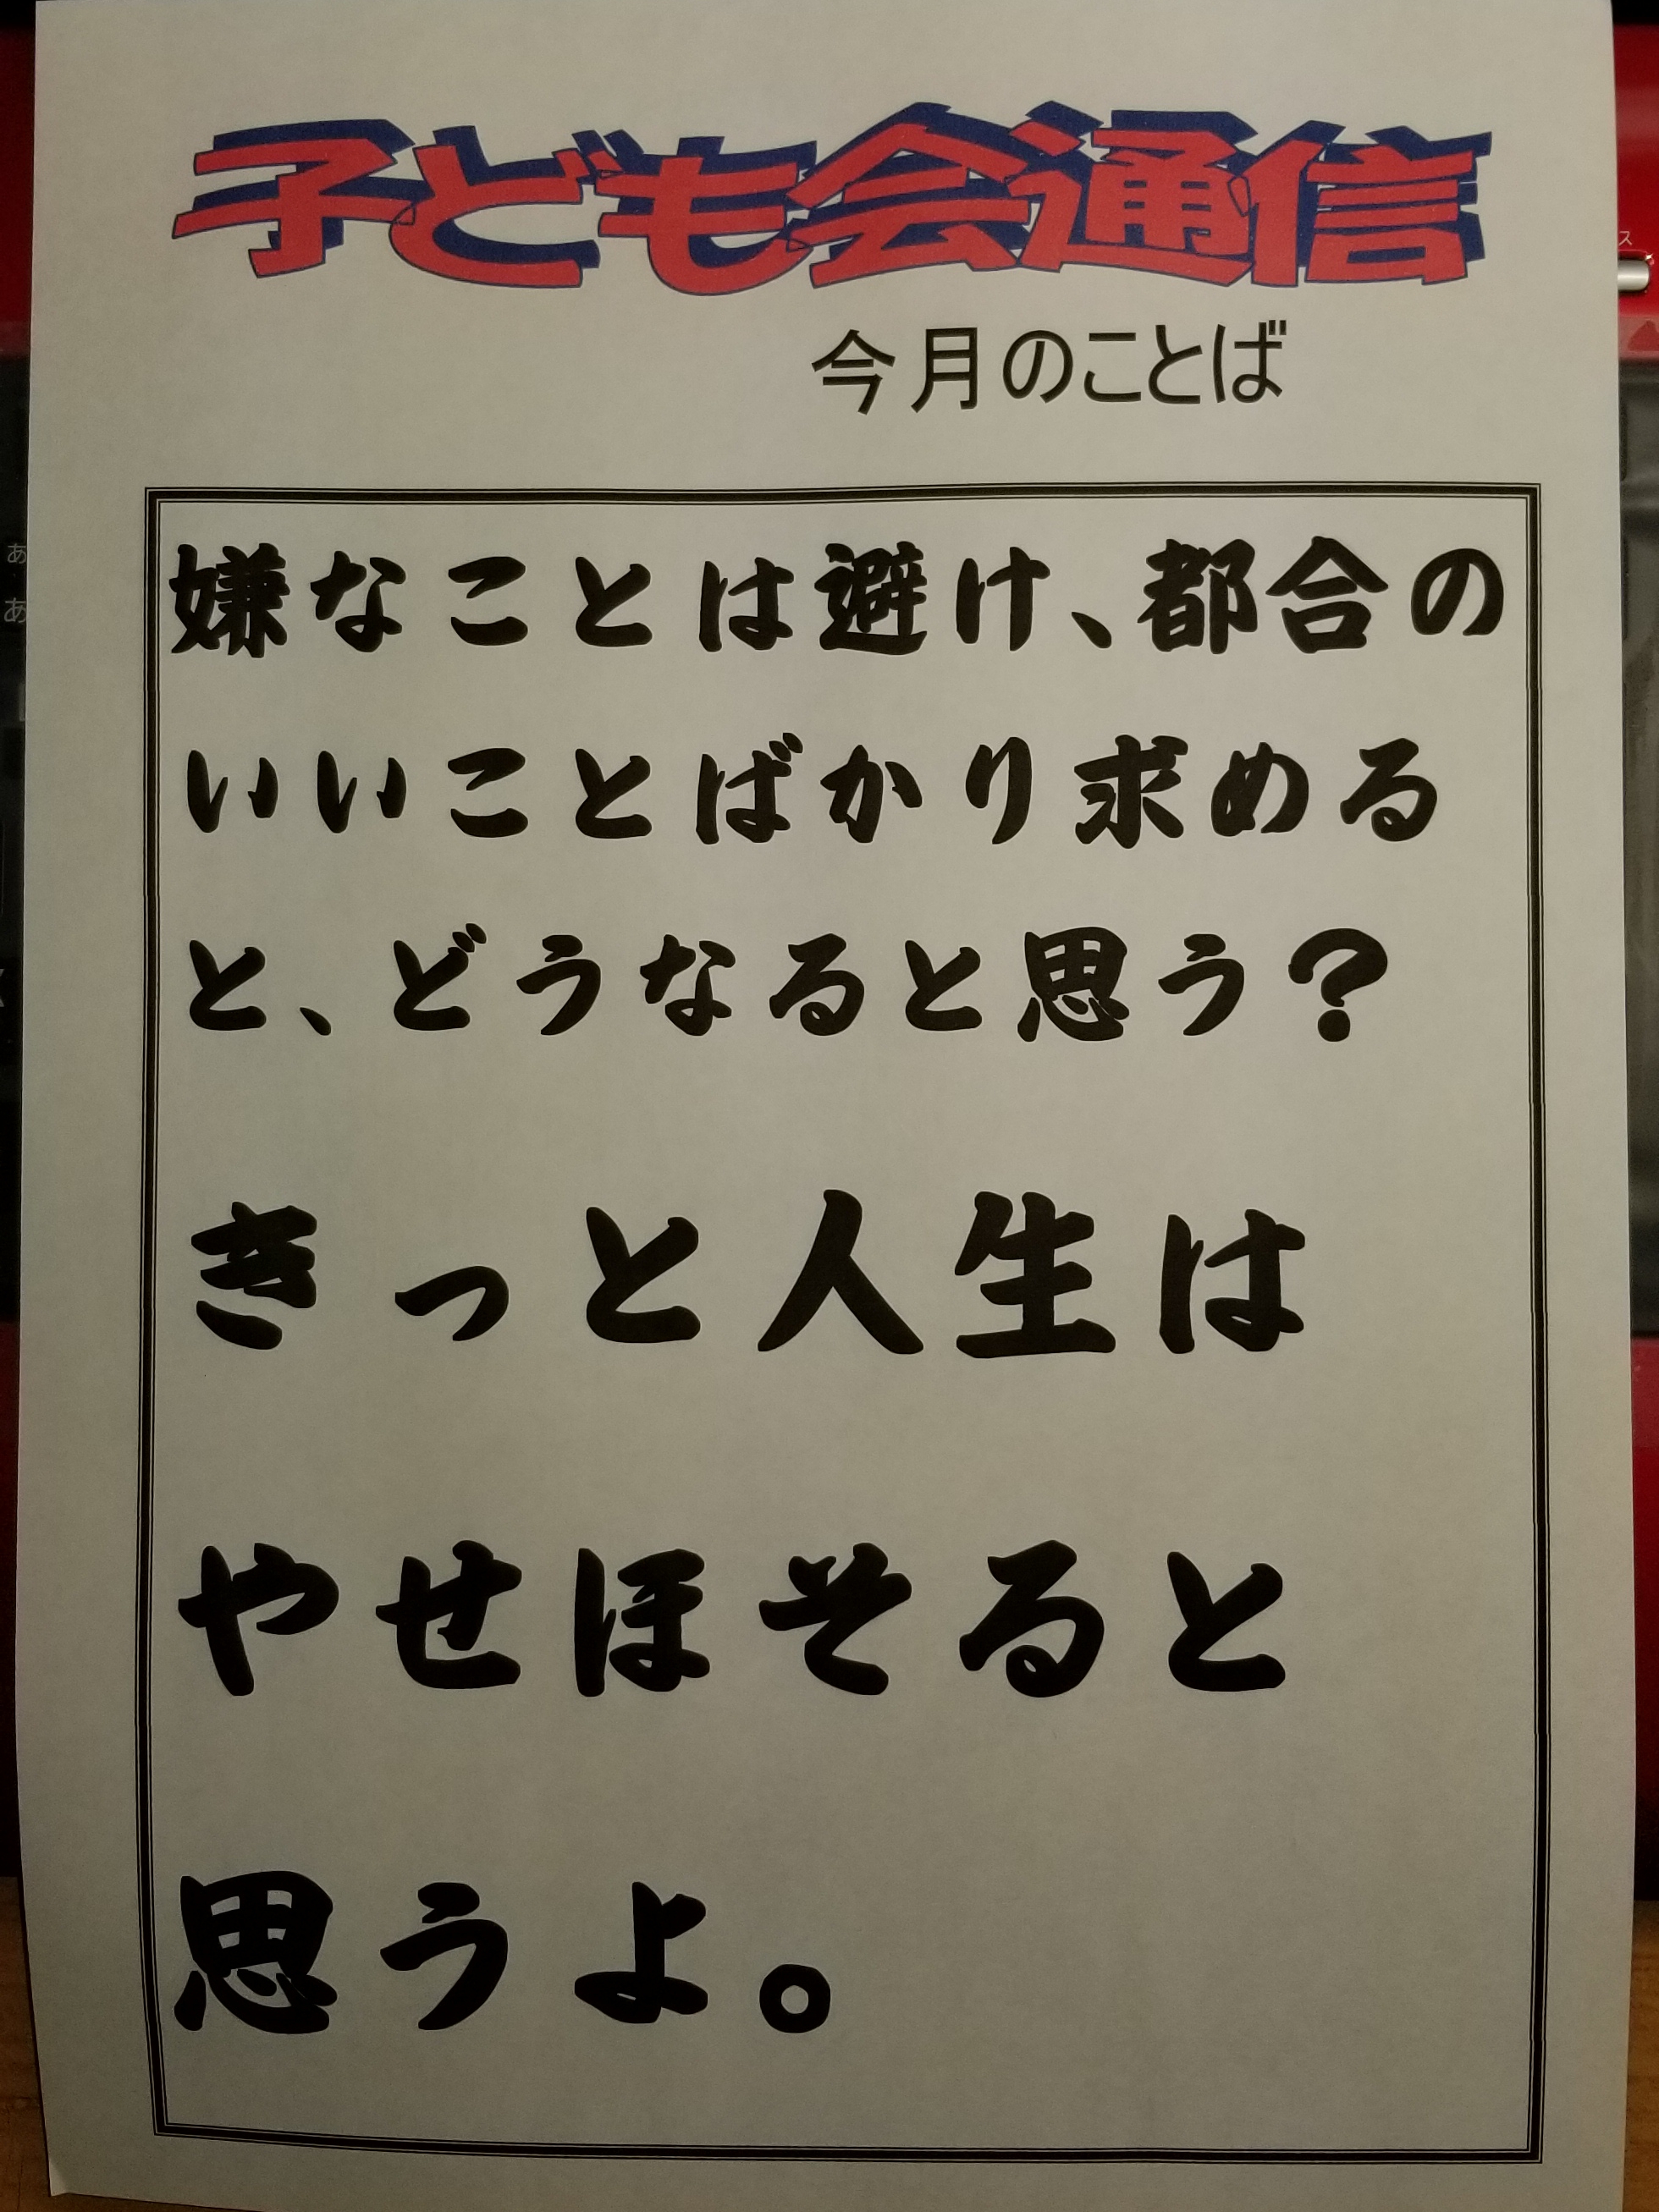 子ども会通信
今月のことば
嫌なことは避け、都合の
いいことばかり求める
と、どうなると思う？
きっと人生は
やせほそると
思うよ。